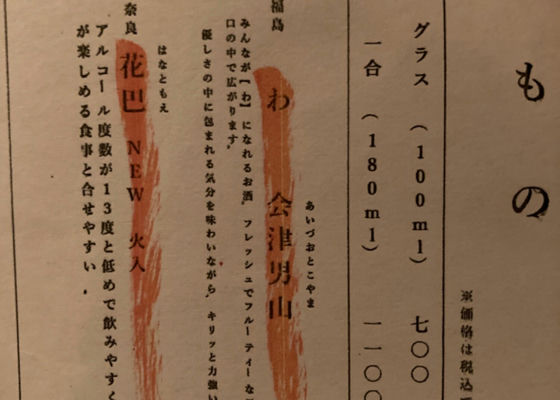 もの
※価格は税込
グラス（100ml） 七〇〇
一合（180ml） 一一〇〇
あいづおとこやま
福島 わ 会津男山
みんなが【わ】になれるお酒。フレッシュでフルーティーな
口の中で広がります。
優しさの中に包まれる気分を味わいながら、キリッと力強い
はなともえ
奈良 花巴 NEW 火入
アルコール度数が13度と低めで飲みやすく
が楽しめる食事と合せやすい。